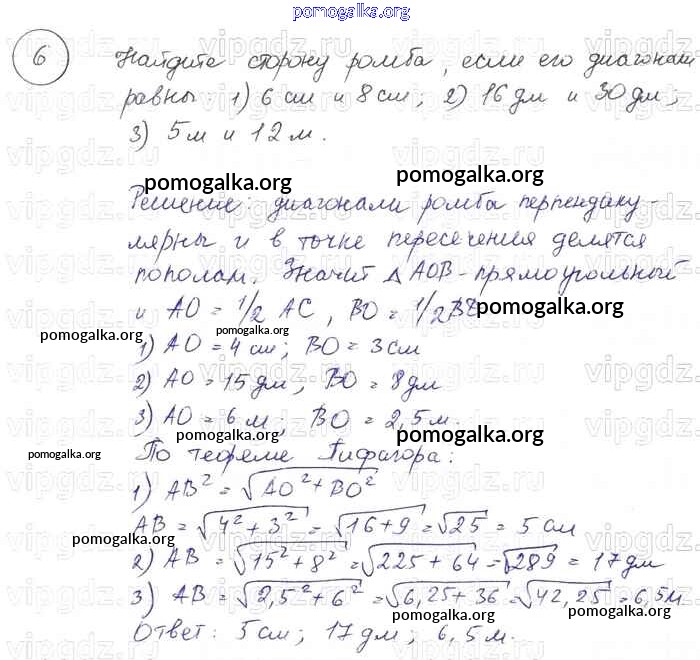 pomogalka.org
6 Найдите сторону ромба, если его диагонали
равны 1) 6 см и 8 см; 2) 16 дм и 30 дм;
3) 5 м и 12 м.
pomogalka.org pomogalka.org
Решение: диагонали ромба перпендику-
лярны и в точке пересечения делятся
пополам. Значит △ AOB - прямоугольный
и AO = 1/2 AC, BO = 1/2
pomogalka.org
pomogalka.org pomogalka.org
1) AO = 4 см; BO = 3 см
2) AO = 15 дм, BO = 8 дм
3) AO = 6 м, BO = 2,5 м.
pomogalka.org pomogalka.org
pomogalka.org
По теореме Пифагора:
1) AB² = √AO² + BO²
AB = √4² + 3² = √16 + 9 = √25 = 5 см
pomogalka.org
2) AB = √15² + 8² = √225 + 64 = √289 = 17 дм
3) AB = √2,5² + 6² = √6,25 + 36 = √42,25 = 6,5 м
pomogalka.org pomogalka.org
Ответ: 5 см; 17 дм; 6,5 м.